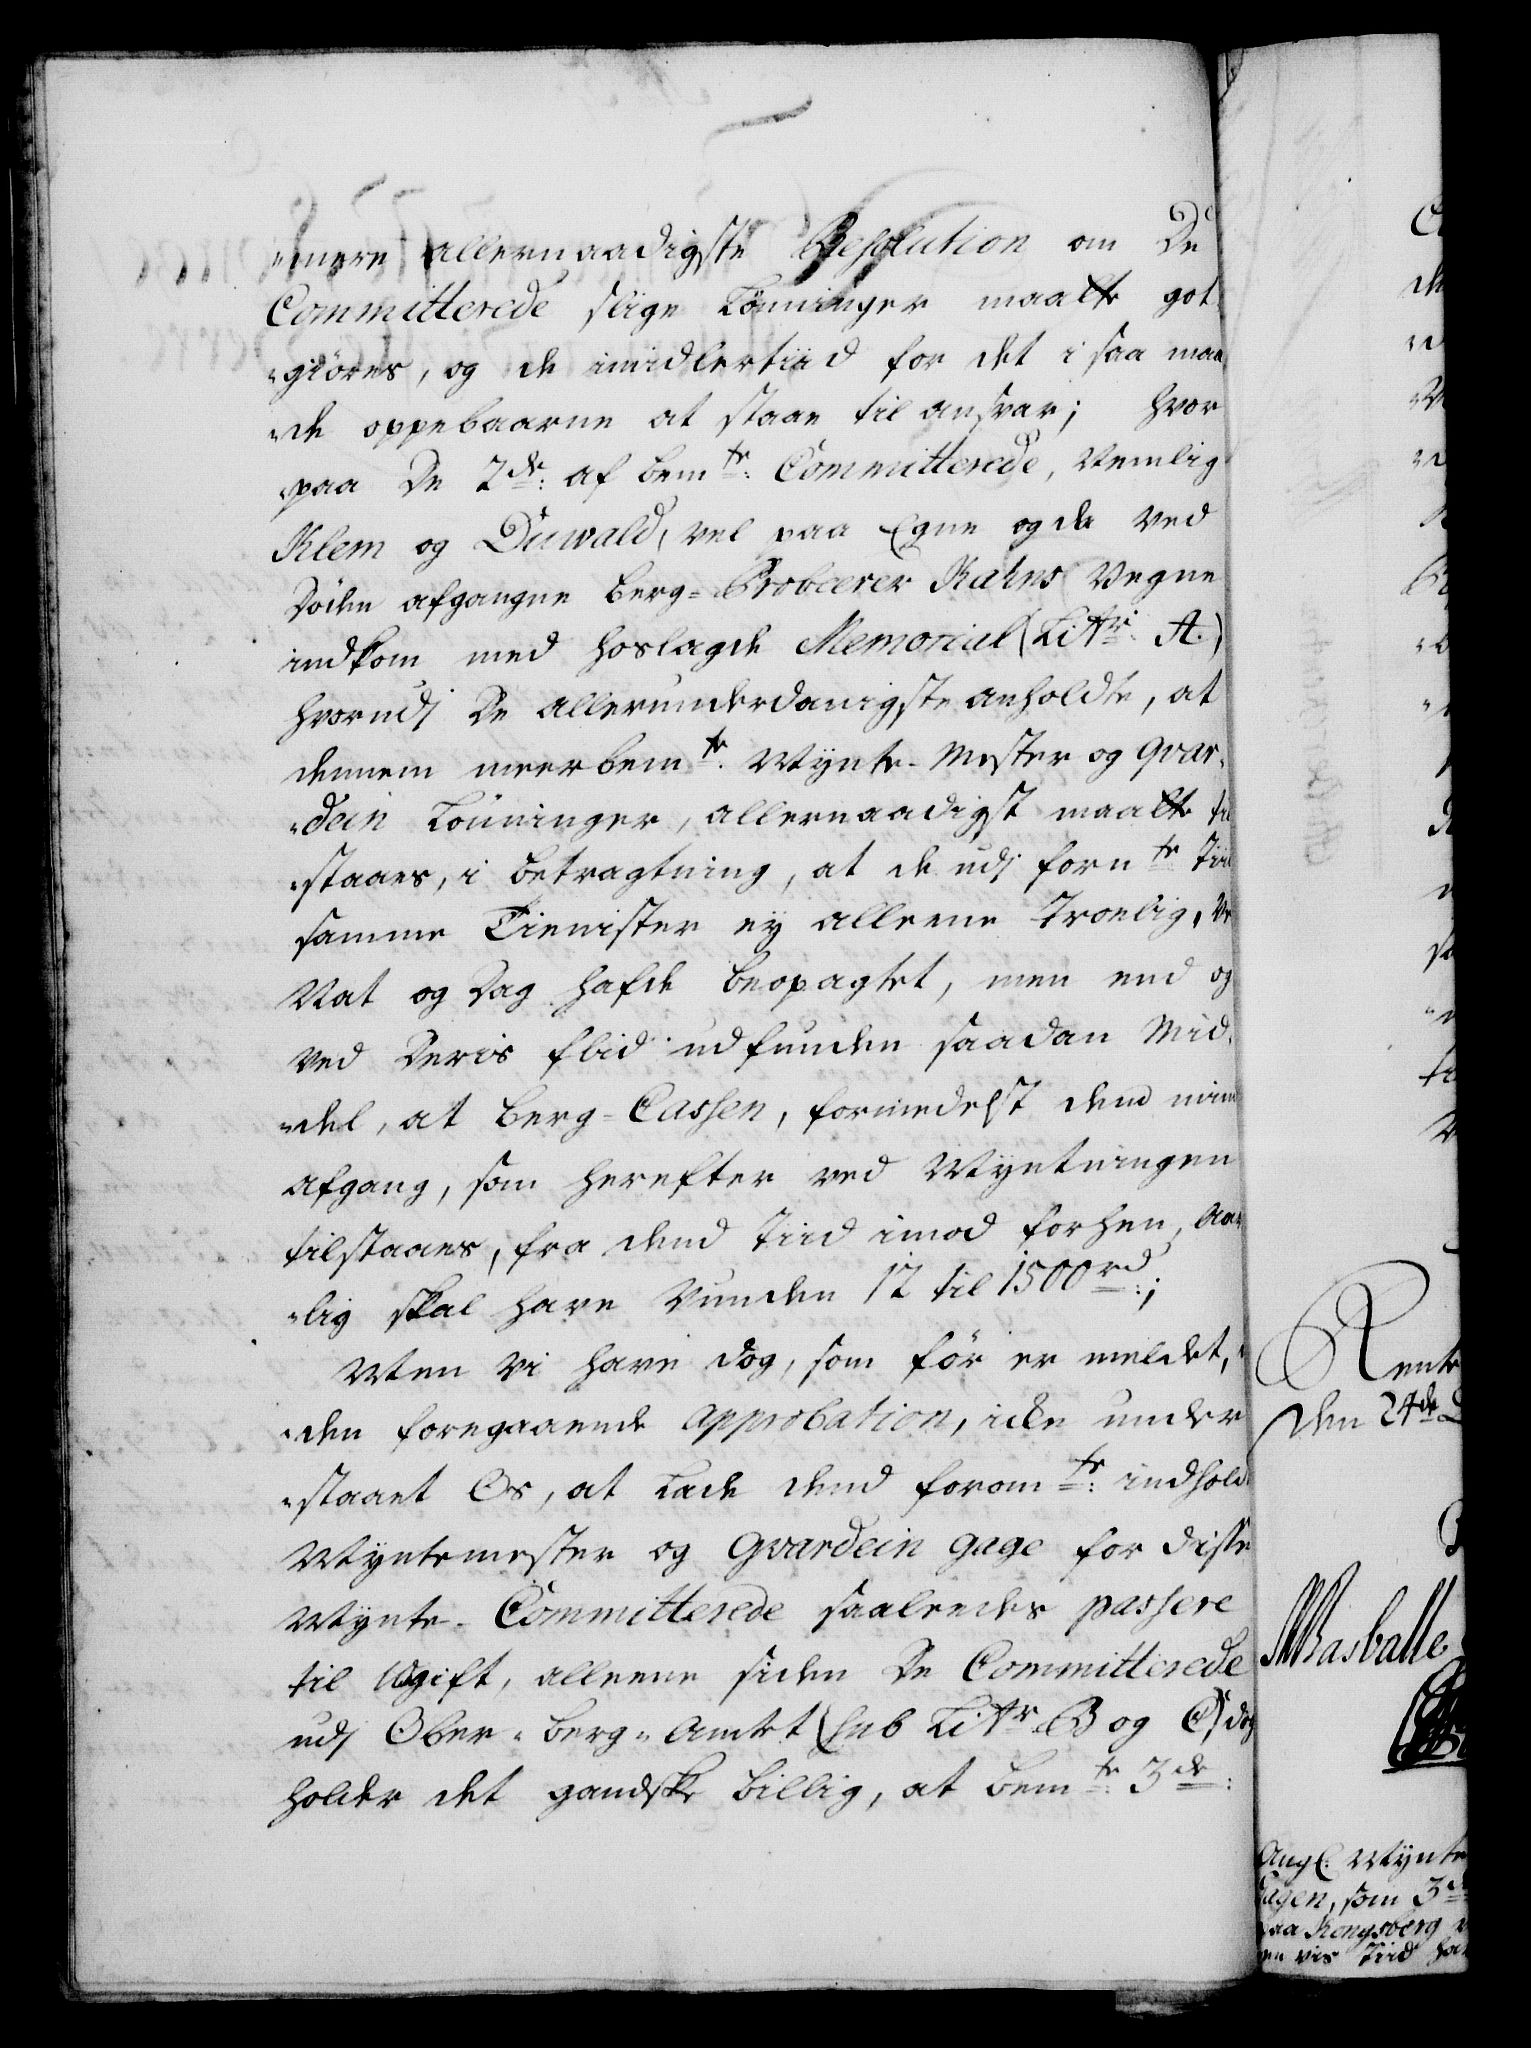 "mere allernaadigste Resolution om De
Committerede slige Lönninger maatte got
"giöres, og de imidlertiid for det i saa maa
"de oppebaarne at staae til ansvar; hvor
"paa De 2de: af bemte: Committerede, Nemlig
Klem og Duwald, vel paa Egne og de ved
Döden afgangne Berg-Probeerer Rahns Vegne
indkom med hoslagde Memorial (Littr: A.)
hvorudj De allerunderdanigste anholdte, at
dennem meerbemte: Mynte-Mester og Gvar-
"dein Lönninger, allernaadigst maatte til
"staaes, i betragtning, at de udj fornte Tiid
samme Tienister ey alleene Troelig, ved
Nat og Dag hafde beopagtet, men end og
ved Deris fliid udfunden saadan Mid-
"del, at Berg-Cassen, formedelst dend mindre
afgang, som herefter ved Myntningen
tilstaaes, fra dend Tiid imod forhen, Aar
"lig skal have Vunden 12 til 1500 rd:;
Men Vi have dog, som för er meldet,
"den foregaaende Approbation, icke under
"staaet Os, at Lade dend foromte: indholdte
Myntemester og Gvardein gage for disse
Mynte-Committerede saaledes passere
til Udgift, alleene siden De Committerede
udj Ober-Berg-Amtet (sub Littr B og C) dog
holder det gandske billig, at bemte: 3de:
Rente
den 24de
Basballe
Angl: Mynte
Gagen, som 3de
paa Kongsberg
en vis Tiid har